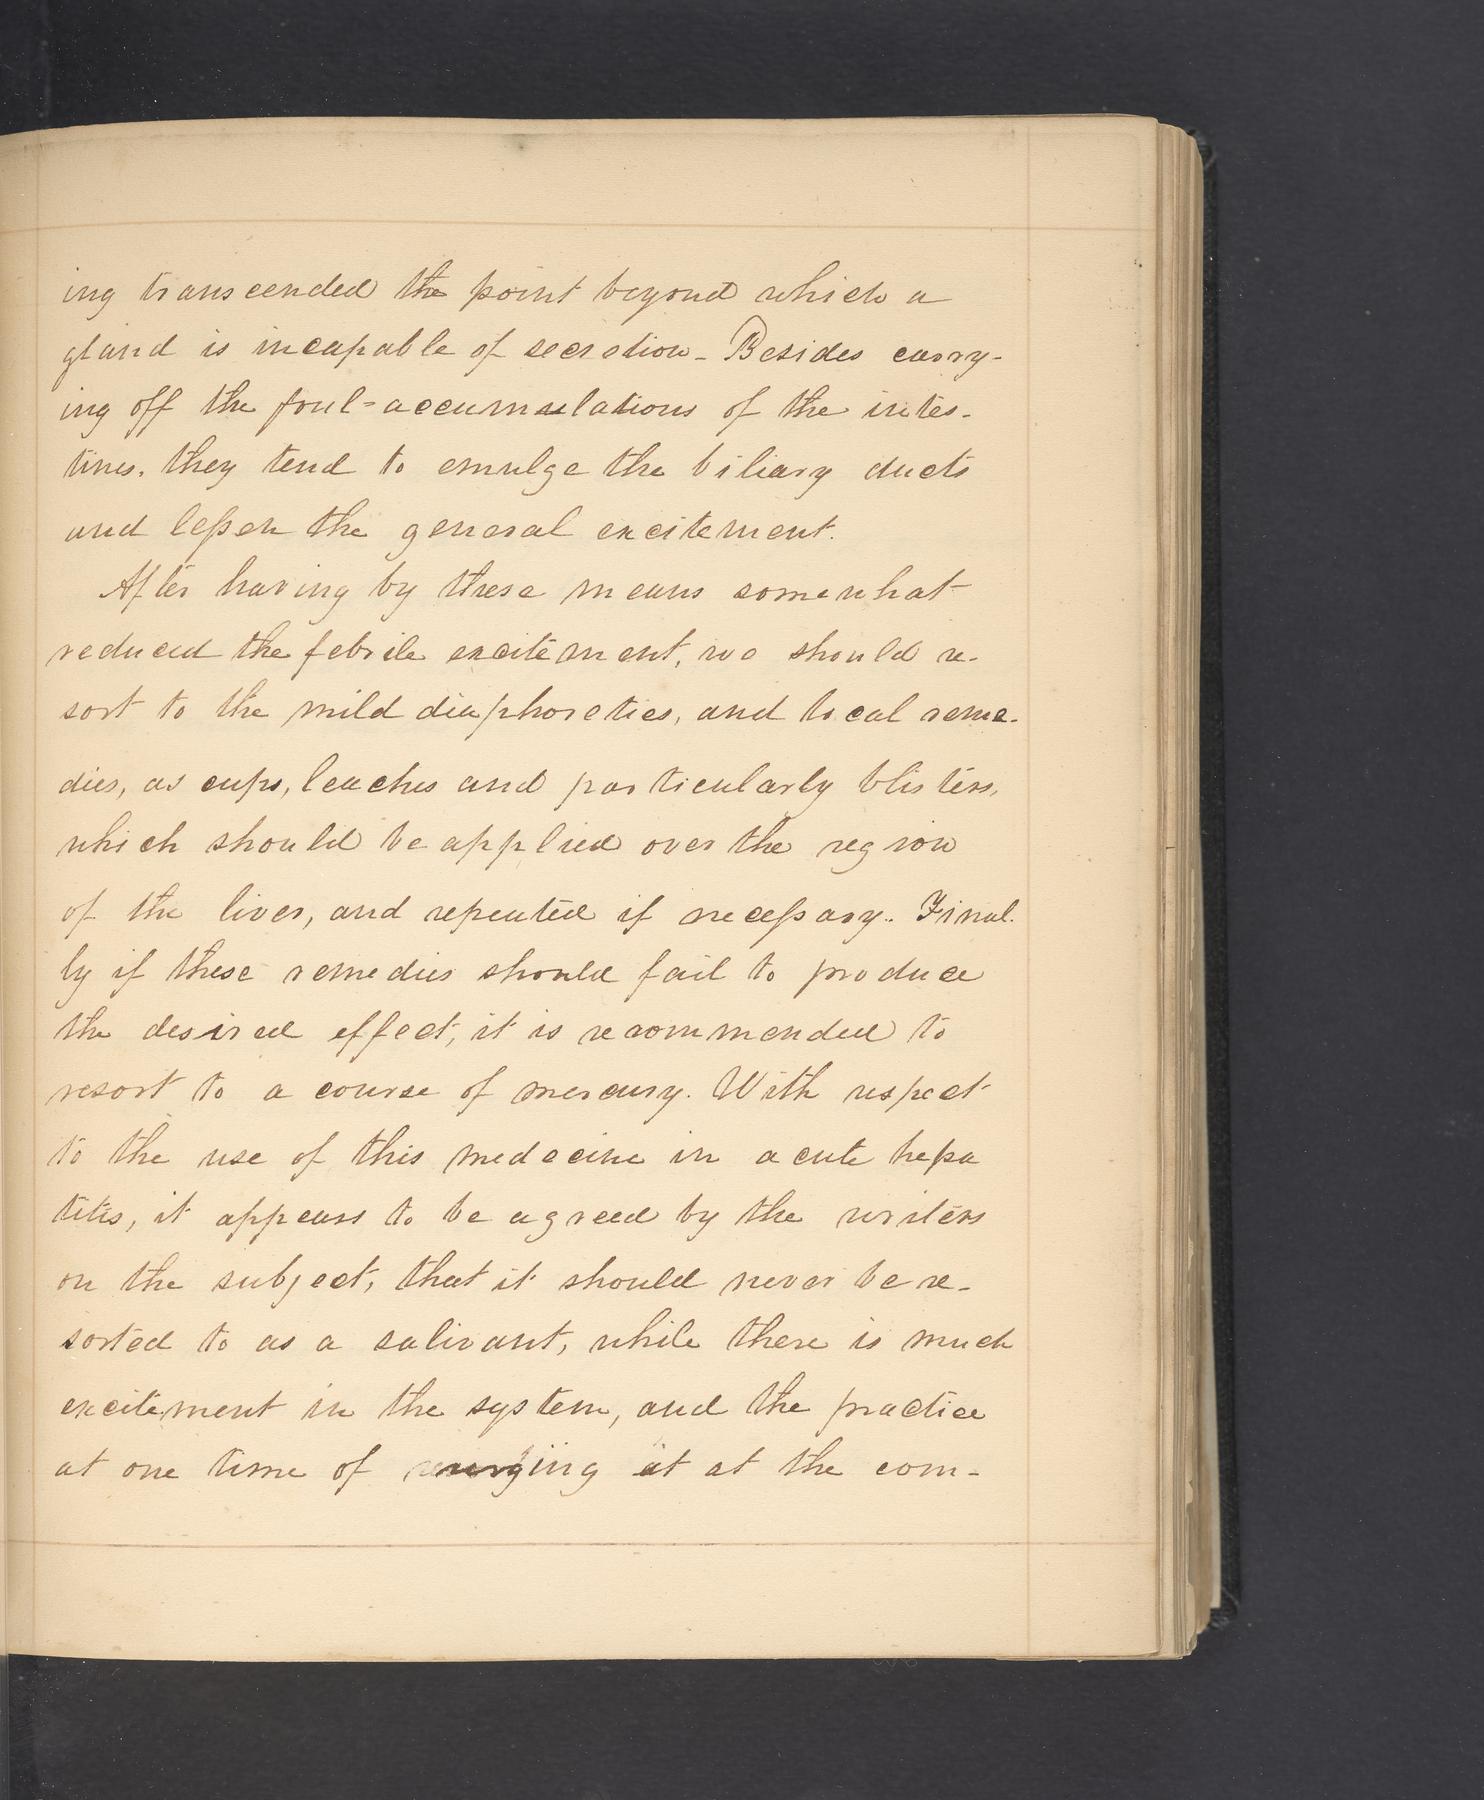 ing transcended the point beyond which a
gland is incapable of secretion - Besides carry-
ing off the foul=accumulations of the intes-
tines. they tend to emulge the biliary ducts
and leſsen the general excitement.
After having by these means somewhat
reduced the febrile excitement, we should re-
sort to the mild diaphoretics, and local reme-
dies, as cups, leaches and particularly blisters,
which should be applied over the region
of the liver, and repeated if neceſsary. Final-
ly if these remedies should fail to produce
the desired effect, it is recommended to
resort to a course of mercury. With respect
to the use of this medecine in acute hepa
titis, it appears to be agreed by the writers
on the subject, that it should never be re-
sorted to as a salivant, while there is much
excitement in the system, and the practice
at one time of it at the com-